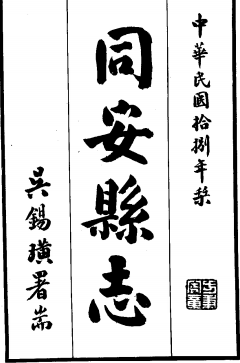 中華民國拾捌年秊
同安縣志
吳錫璜署耑